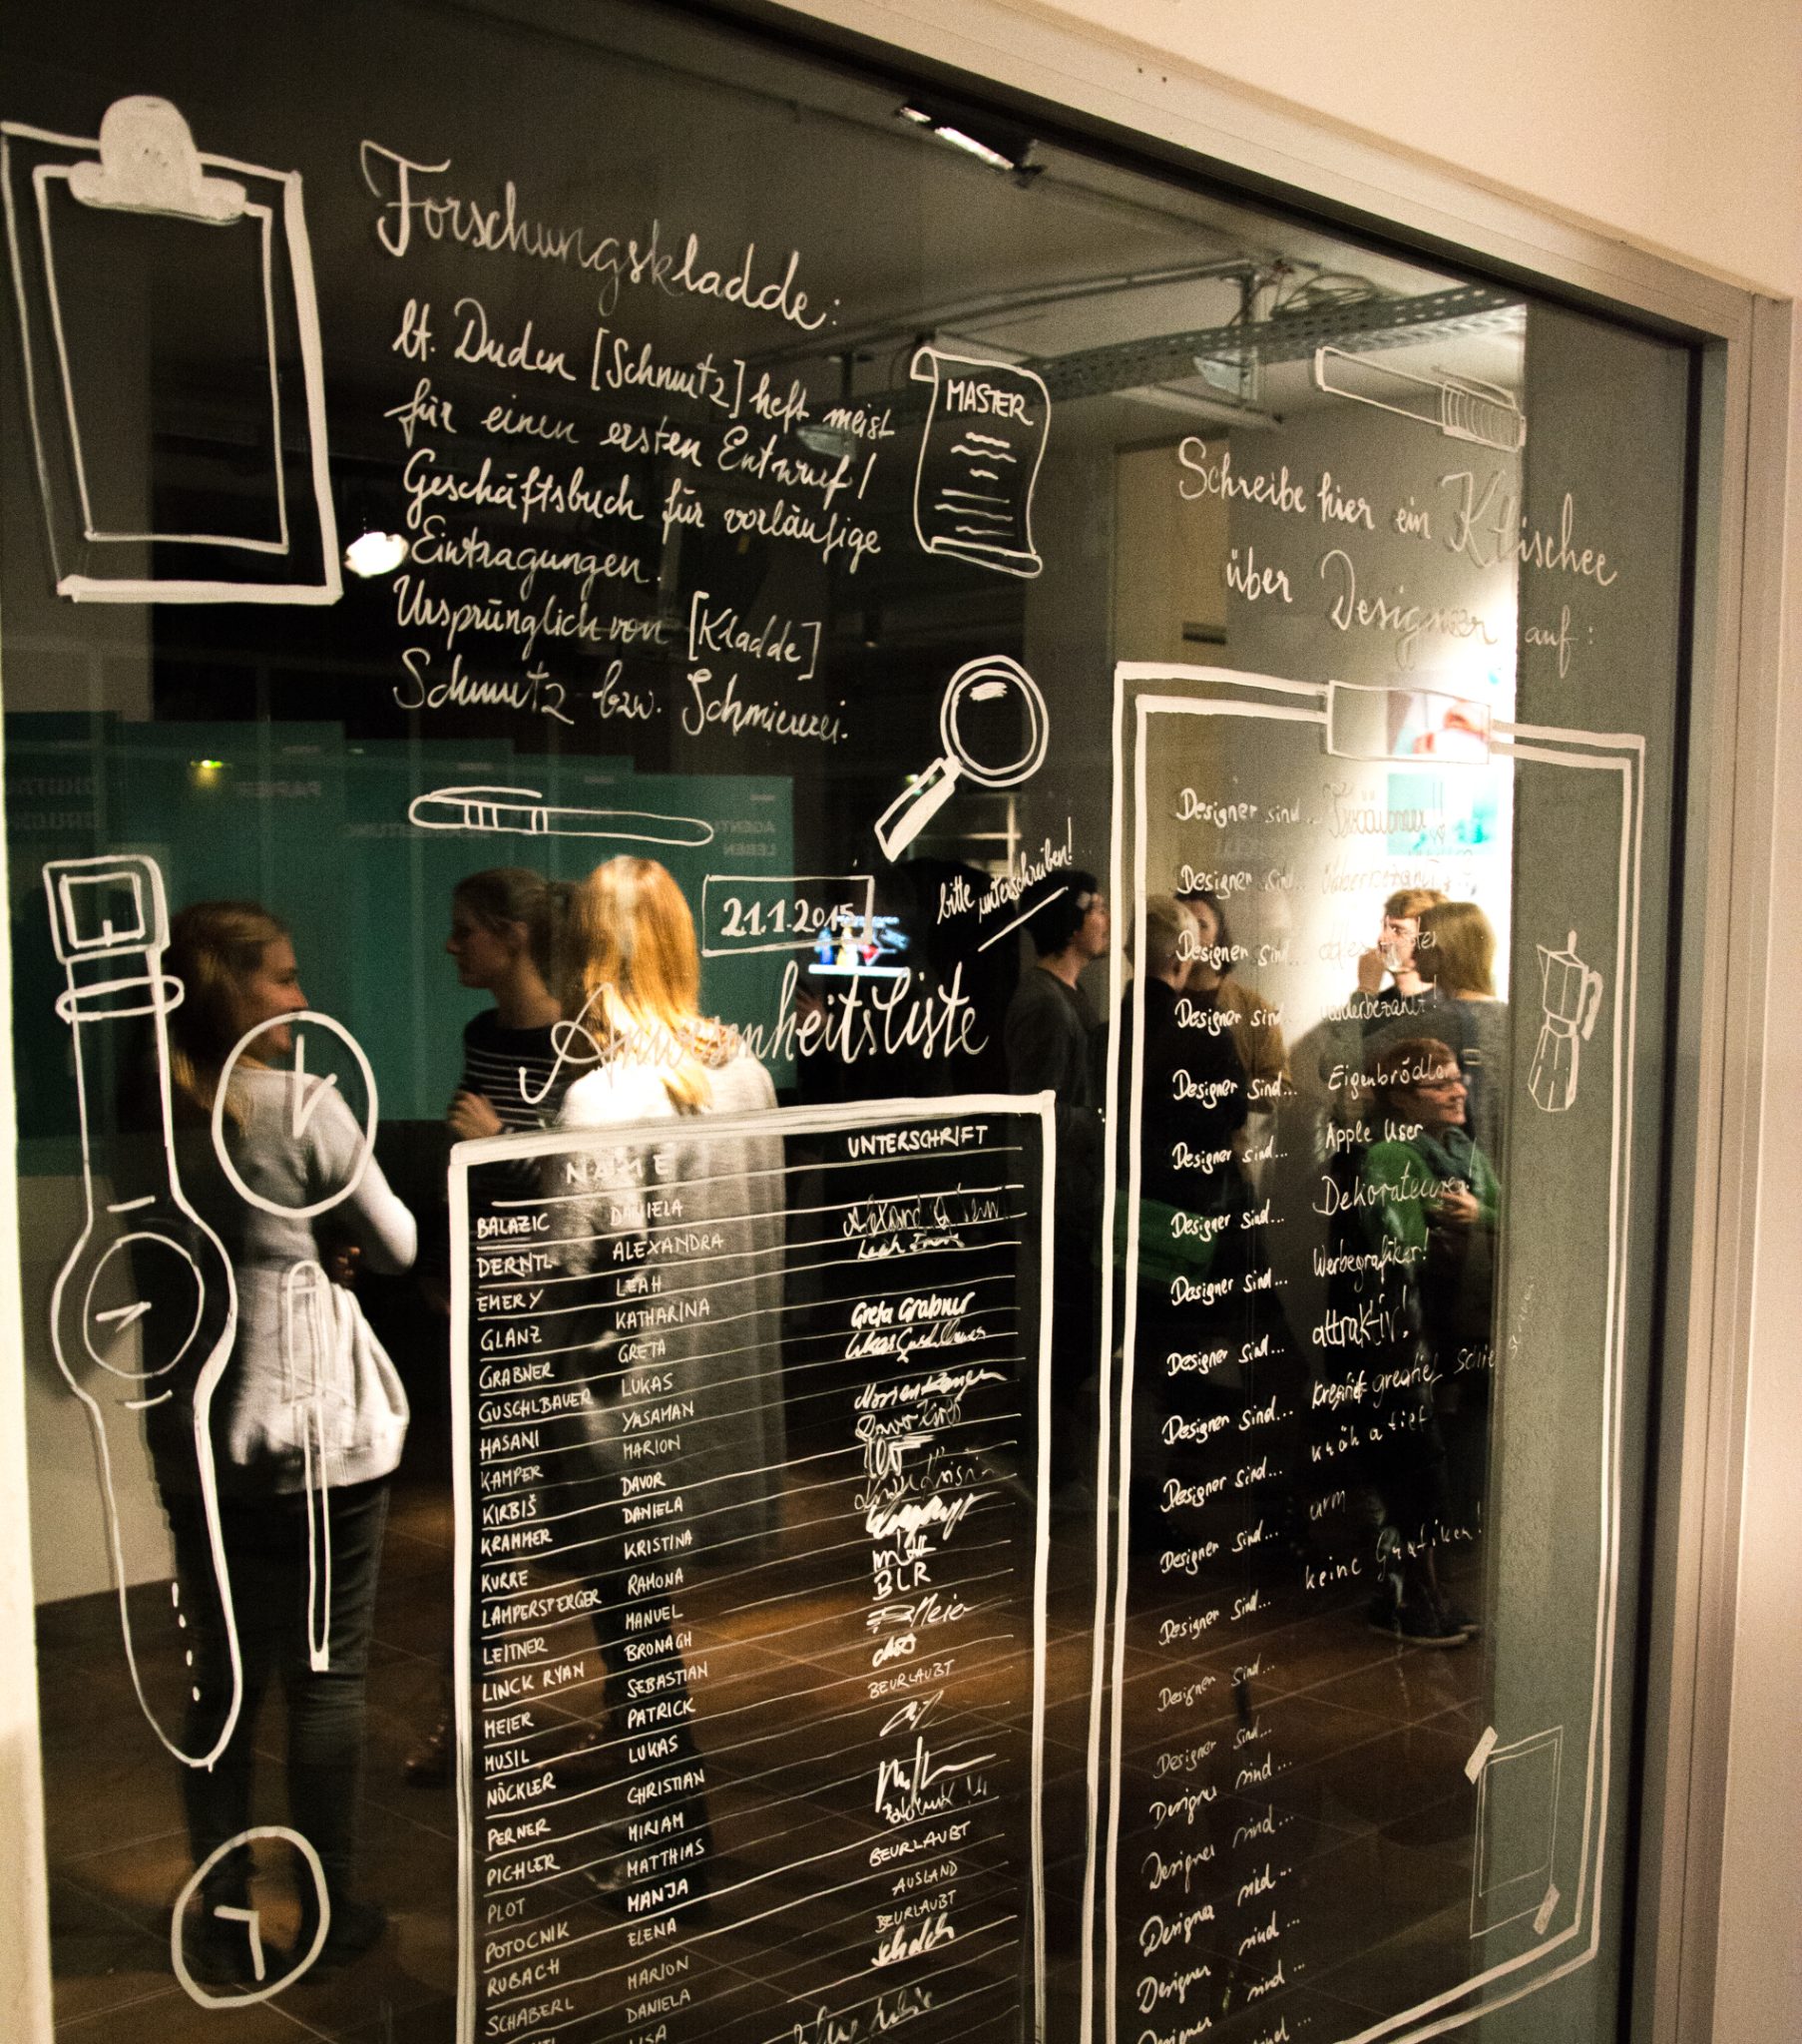 Forschungskladde:
lt. Duden [Schmutz]heft meist
für einen ersten Entwurf/
Geschäftsbuch für vorläufige
Eintragungen.
Ursprünglich von [Kladde]
Schmutz bzw. Schmiererei.
MASTER
21.1.2015
bitte unterschreiben!
Anwesenheitsliste
NAME UNTERSCHRIFT
BALAZIC DANIELA
DERNTL ALEXANDRA
EMERY LEAH
GLANZ KATHARINA
GRABNER GRETA Greta Grabner
GUSCHLBAUER LUKAS
HASANI YASAMAN
KAMPER MARION
KIRBIŠ DAVOR
KRAMMER DANIELA
KURRE KRISTINA
LAMPERSTERGER RAMONA
LEITNER MANUEL
LINCK RYAN BRONAGH BLR
MEIER SEBASTIAN Meier
MUSIL PATRICK
NÖCKLER LUKAS BEURLAUBT
PERNER CHRISTIAN
PICHLER MIRIAM
PLOT MATTHIAS
POTOCNIK MANJA BEURLAUBT
RUBACH ELENA AUSLAND
SCHABERL MARION BEURLAUBT
DANIELA
LISA
Schreibe hier ein Klischee
über Designer auf:
Designer sind...
Designer sind...
Designer sind...
Designer sind... unterbezahlt!
Designer sind... Eigenbrödler
Designer sind... Apple User
Designer sind... Dekorateure
Designer sind... Werbegrafiker!
Designer sind... attraktiv!
Designer sind... kreatief greatief
Designer sind... kräh a tief
Designer sind... arm
Designer sind... keine Grafiker!
Designer sind...
Designer sind...
Designer sind...
Designer sind...
Designer sind...
Designer sind...
Designer sind...
PAPIER
AGENTUR
LEBEN